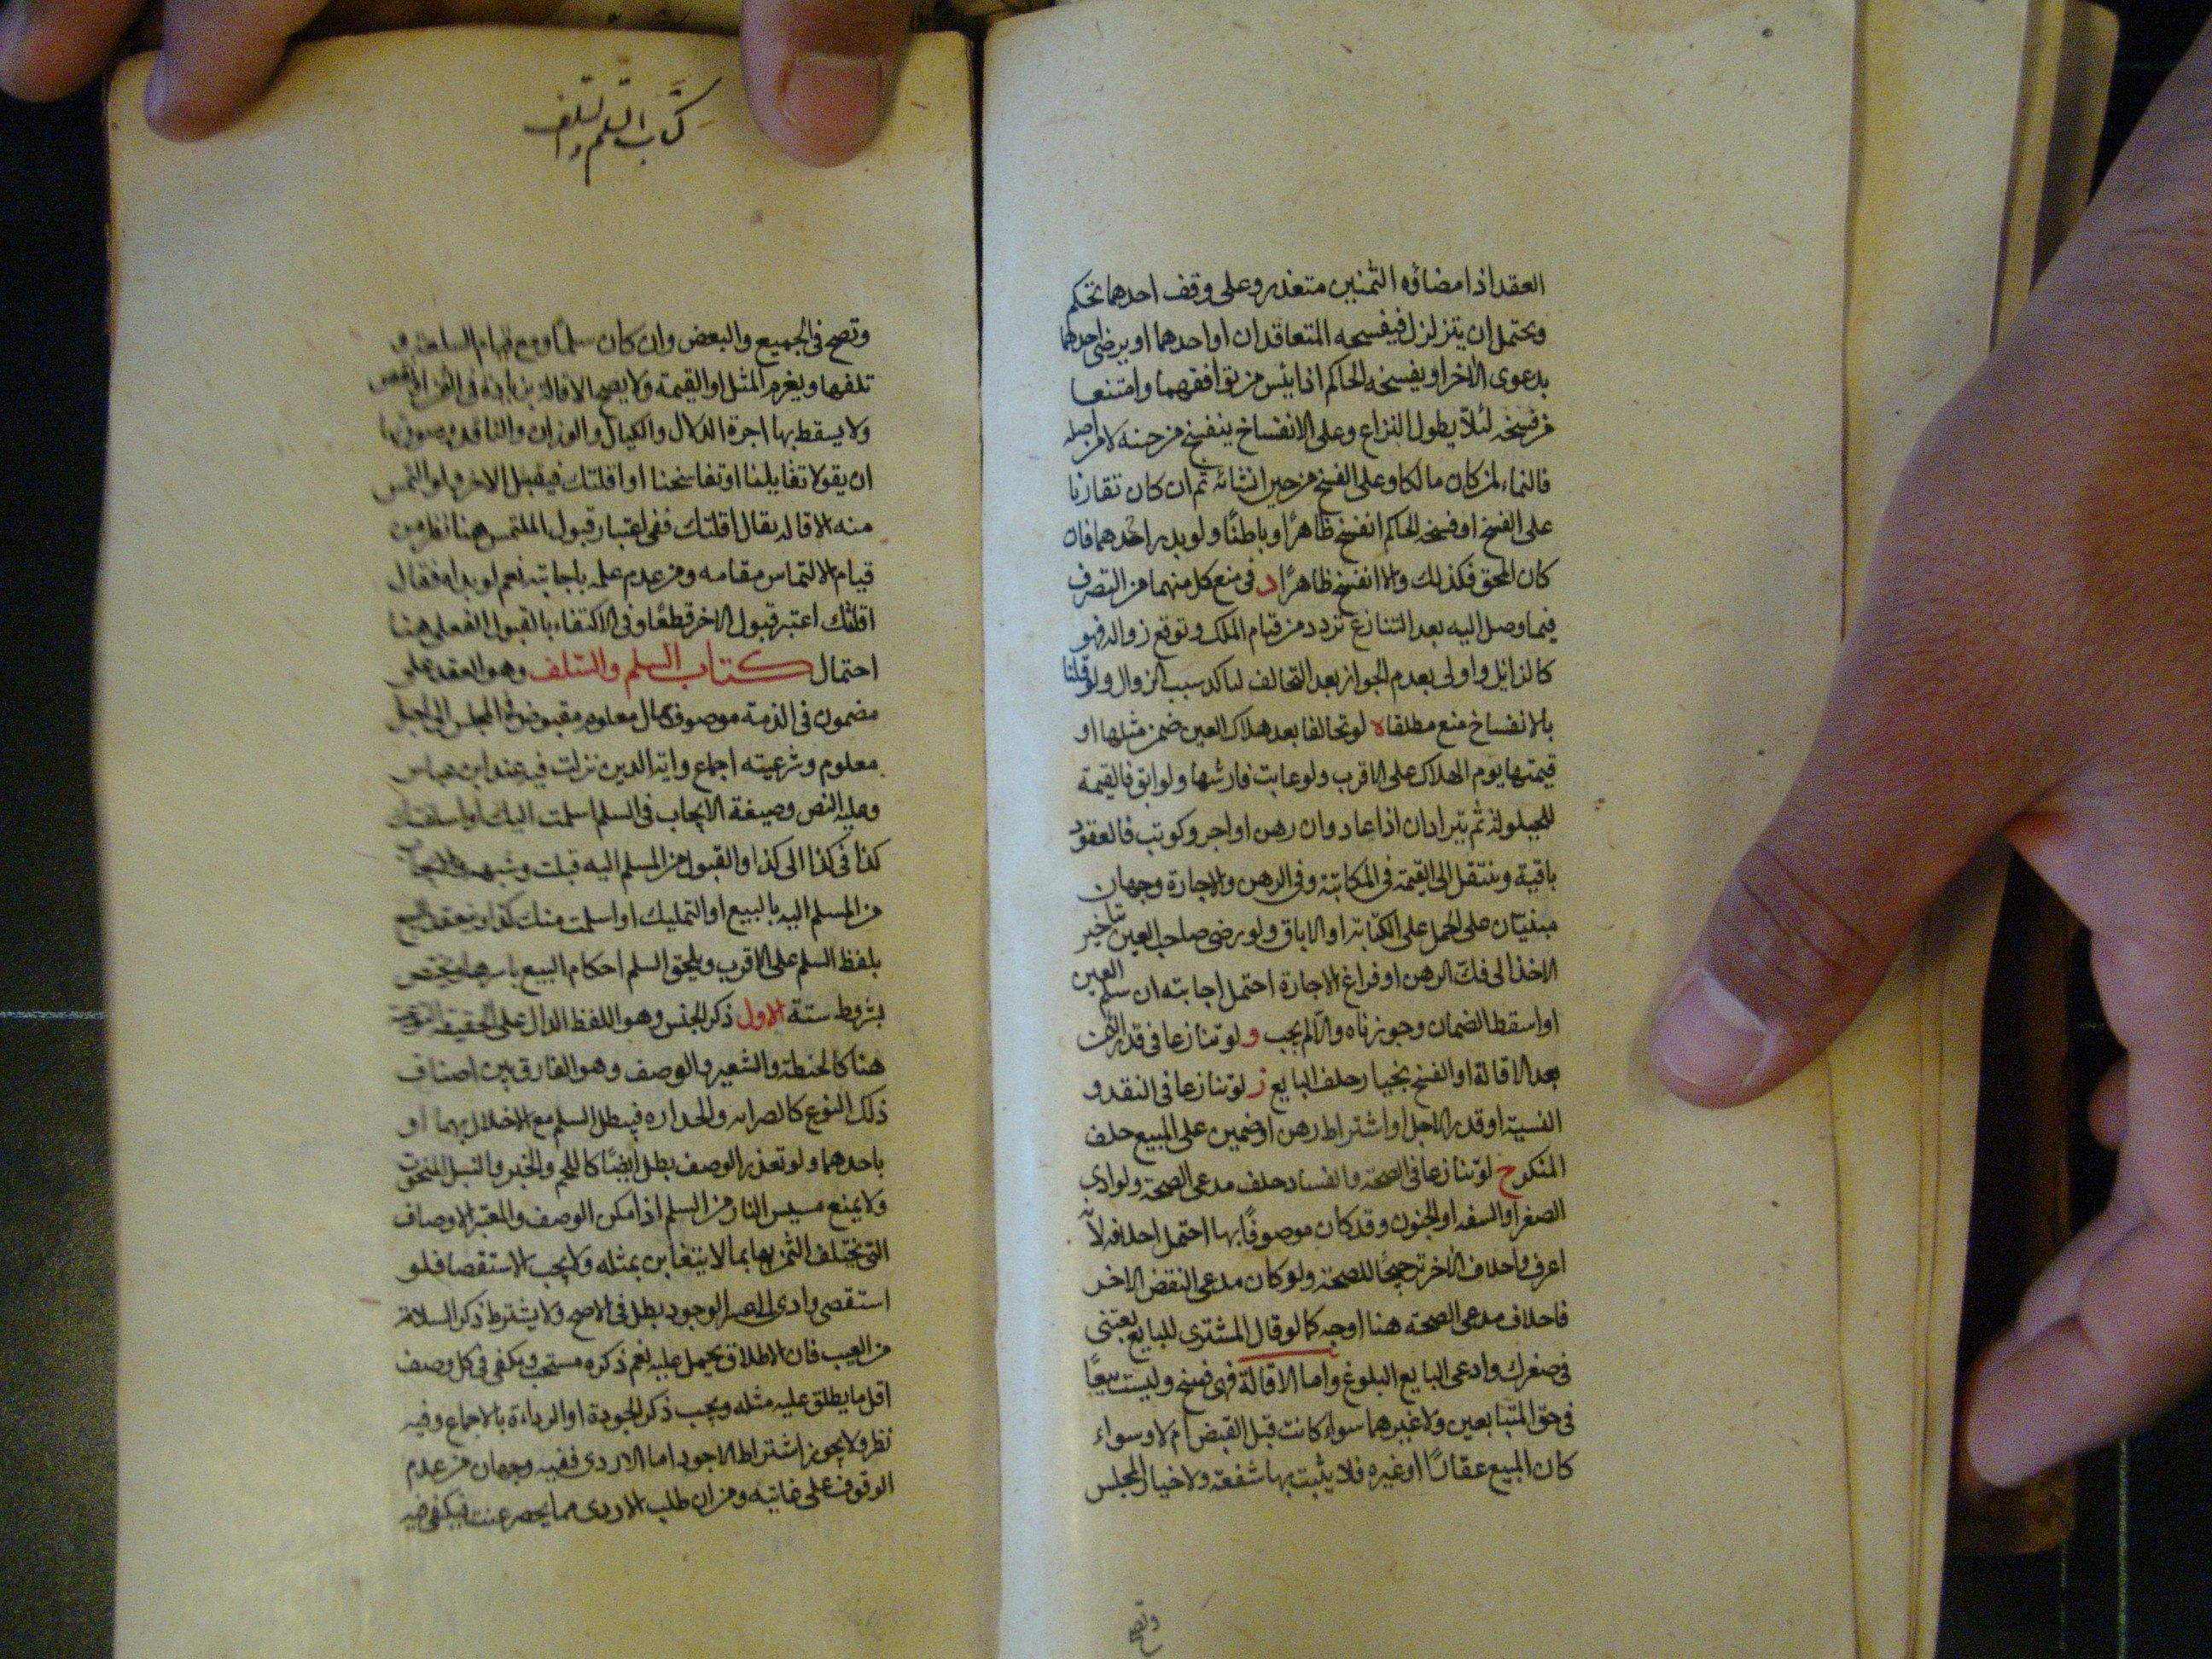 العقد اذ امضاؤه الثمنين متعذر وعلى وقف احدهما تحكم
ويحتمل ان يتزلزل فيفسخه المتعاقدان او احدهما او يرضى احدهما
بدعوى الاخر او يفسخه الحاكم اذا يئس من توافقهما وامتنعا
من فسخه لئلا يطول النزاع وعلى الانفساخ ينفسخ من حينه لا من اصله
فالنماء لمن كان مالكا وعلى الفسخ من حين انشائه ثم ان كان تقارنا
على الفسخ او فسخه الحاكم انفسخ ظاهرًا وباطنًا ولو بدر احدهما فان
كان المحق فكذلك والا انفسخ ظاهرًا د فى منع كل منهما من التصرف
فيما وصل اليه بعد التنازع تردد من قيام الملك وتوقع زواله فهو
كالزايل واولى بعدم الجواز بعد التحالف لتاكد سبب الزوال ولو قلنا
بالانفساخ منع مطلقا ه لو تحالفا بعد هلاك العين ضمن مثلها او
قيمتها يوم الهلاك على الاقرب ولو عابت فارشها ولو ابق فالقيمة
للحيلولة ثم يترادان اذا عاد وان رهن او اجر وكوتب فالعقود
باقية وينتقل الى القيمة فى المكاتبة وفى الرهن والاجارة وجهان
مبنيّان على الحمل على الكتابة او الاباق ولو رضى صاحب العين بتاخير
الاخذ الى فك الرهن او فراغ الاجارة احتمل اجابته ان سلم العين
او اسقط الضمان وجوزناه والا لم يجب و لو تنازعا فى قدر الثمن
بعد الاقالة او الفسخ بخيار حلف البايع ز لو تنازعا فى النقد و
النسية او قدر الاجل او اشتراط رهن او ضمين على المبيع حلف
المنكر ح لو تنازعا فى الصحة والفساد حلف مدعى الصحة ولو ادى
الصغر او السفه او الجنون وقد كان موصوفًا بها احتمل احلافه لانه
اعرف واحلاف الاخر ترجيحًا للصحة ولو كان مدعى النقض الاخر
فاحلاف مدعى الصحة هنا اوجه كما لو قال المشترى للبايع بعتنى
فى صغرك وادعى البايع البلوغ واما الاقالة فهى فسخ وليست بيعًا
فى حق المتبايعين ولا غيرهما سواء كانت قبل القبض ام لا وسواء
كان المبيع عقارًا او غيره فلا يثبت بها شفعة ولا خيار المجلس
وتصح
كتاب السلم والسلف
وتصح فى الجميع والبعض وان كان سلمًا ومع قيام السلعة و
تلفها ويغرم المثل او القيمة ولا يصح الاقالة بزيادة فى الثمن او نقص
ولا يسقط بها اجرة الدلال والكيال والوزان والناقد وصورتها
ان يقولا تقايلنا او تفاسخنا او اقلتك فيقبل الاخر ولو التمس
منه الاقالة فقال اقلتك ففى اعتبار قبول الملتمس هنا نظر من
قيام الالتماس مقامه ومن عدم علمه باجابته نعم لو بداه فقال
اقلتك اعتبر قبول الاخر قطعًا وفى الاكتفاء بالقبول الفعلى هنا
احتمال كتاب السلم والسلف وهو العقد على
مضمون فى الذمة موصوف بمال معلوم مقبوض فى المجلس الى اجل
معلوم وشرعيته اجماع واية الدين نزلت فيه عند ابن عباس
وعليه النص وصيغة الايجاب فى السلم اسلمت اليك او اسلفتك
كذا فى كذا الى كذا والقبول من المسلم اليه قبلت وشبهه والايجاب
من المسلم اليه بالبيع او التمليك او اسلمت منك كذا وينعقد البيع
بلفظ السلم على الاقرب ويلحق السلم احكام البيع باسرها ويختص
بشروط ستة الاول ذكر الجنس وهو اللفظ الدال على الحقيقة النوعية
هنا كالحنطة والشعير والوصف وهو الفارق بين اصناف
ذلك النوع كالصرابه والحداره فيبطل السلم مع الاخلال بهما او
باحدهما ولو تعذر الوصف بطل ايضًا كاللحم والخبز والنبل المنحوت
ولا يمنع مسيس النار من السلم اذا امكن الوصف والمعتبر الاوصاف
التى يختلف الثمن بها بما لا يتغابن بمثله ولا يجب الاستقصا فلو
استقصى وادى الى عسر الوجود بطل فى الاصح ولا يشترط ذكر السلامة
من العيب فان الاطلاق يحمل عليه نعم ذكره مستحب ويكفى فى كل وصف
اقل ما يطلق عليه مثله ويجب ذكر الجودة او الرداءة بالاجماع وفيه
نظر ولا يجوز اشتراط الاجود اما الاردى ففيه وجهان من عدم
الوقوف على غايته ومن ان طلب الاردى مما يحصر عنت فيكفى فيه